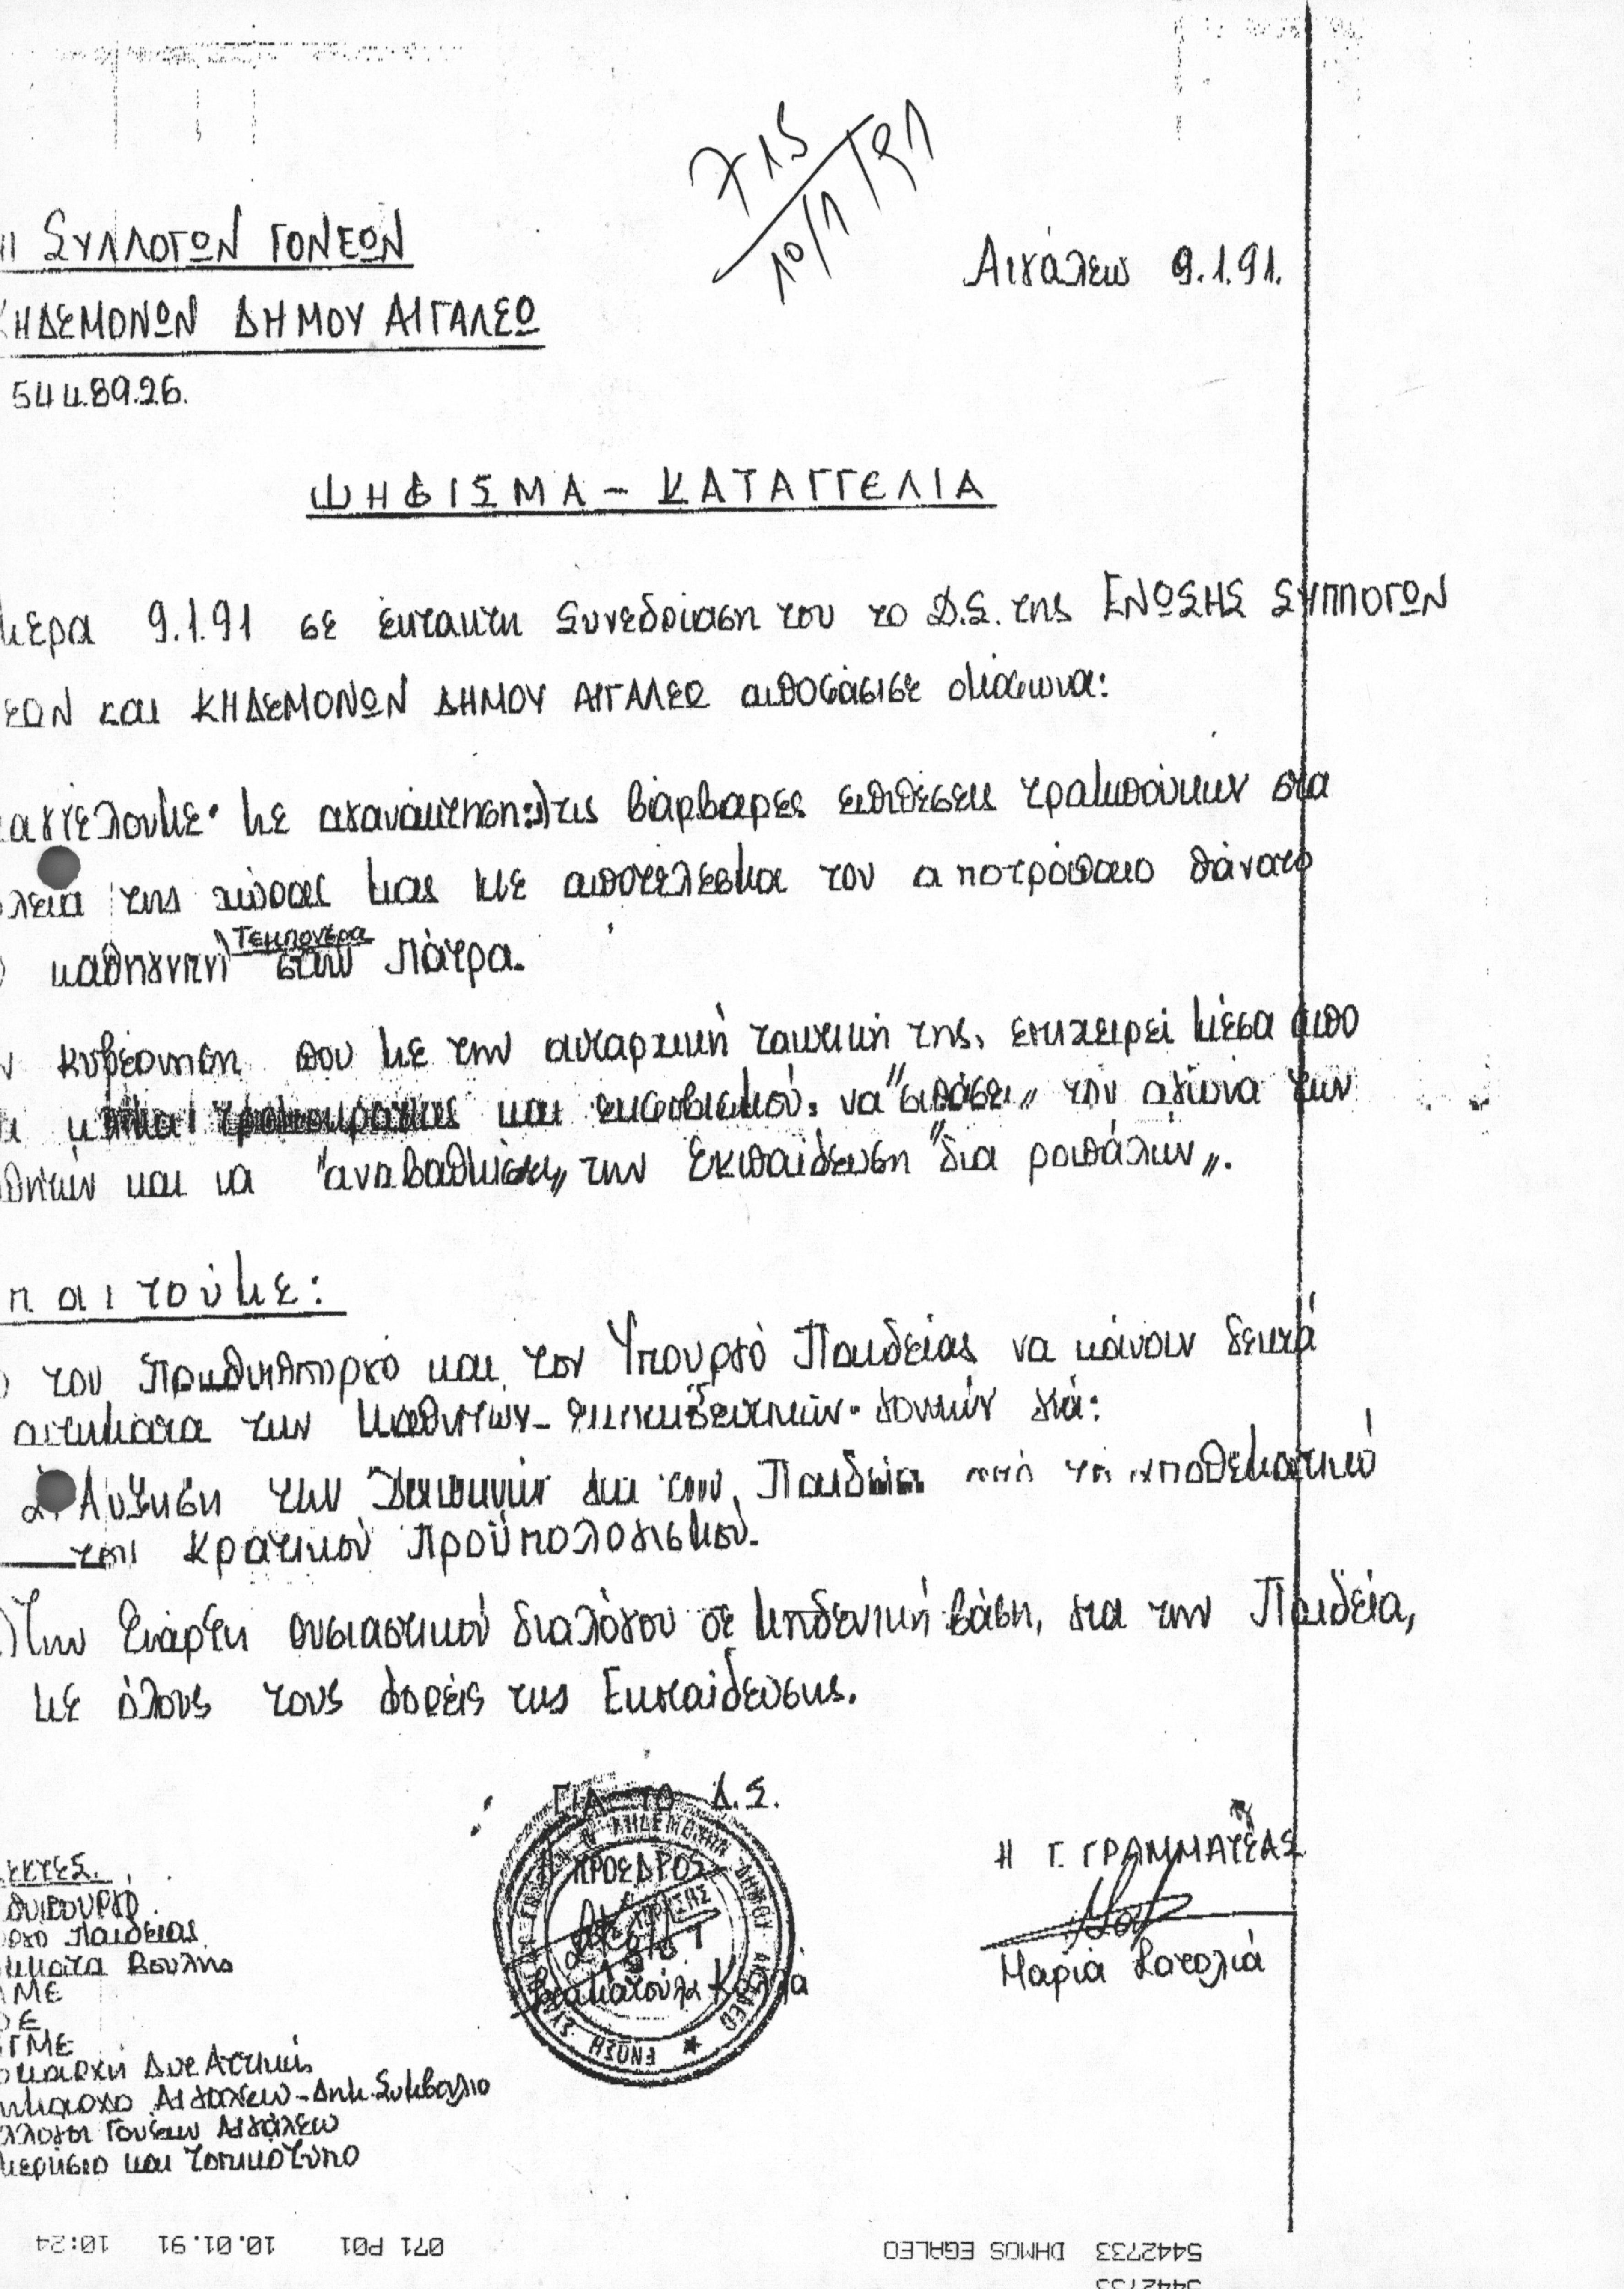 715
10/1/91
ΣΥΛΛΟΓΩΝ ΓΟΝΕΩΝ
ΚΗΔΕΜΟΝΩΝ ΔΗΜΟΥ ΑΙΓΑΛΕΩ
5448926.
Αιγάλεω 9.1.91.
ΨΗΦΙΣΜΑ - ΚΑΤΑΓΓΕΛΙΑ
μερα 9.1.91 σε έκτακτη Συνεδρίαση του το Δ.Σ. της ΕΝΩΣΗΣ ΣΥΛΛΟΓΩΝ
ΕΩΝ και ΚΗΔΕΜΟΝΩΝ ΔΗΜΟΥ ΑΙΓΑΛΕΩ αποφάσισε ομόφωνα:
αγγέλουμε με αγανάκτηση: τις βάρβαρες επιθέσεις τραμπούκων στα
λεία της χώρας μας με αποτέλεσμα τον αποτρόπαιο θάνατο
καθηγητή Τεμπονέρα στην Πάτρα.
ν κυβέρνηση που με την αυταρχική τακτική της, επιχειρεί μέσα απο
κλίμα τρομοκρατίας και εκφοβισμού, να "σπάσει" τον αγώνα των
θητών και να "αναβαθμίσει" την Εκπαίδευση "δια ροπάλων".
παιτούμε:
τον Πρωθυπουργό και τον Υπουργό Παιδείας να κάνουν δεκτά
αιτήματα των Μαθητών - εκπαιδευτικών - γονιών γιά:
Αύξηση των Δαπανών για την Παιδεία από το αποθεματικό
του Κρατικού Προϋπολογισμού.
Την Έναρξη ουσιαστικού διαλόγου σε μηδενική βάση, για την Παιδεία,
με όλους τους φορείς της Εκπαίδευσης.
ΓΙΑ ΤΟ Δ.Σ.
Η ΠΡΟΕΔΡΟΣ
Σταματούλα Κόλλια
Η Γ. ΓΡΑΜΜΑΤΕΑΣ
Μαρία
ΕΝΩΣΗ
ΚΗΔΕΜΟΝΩΝ ΔΗΜΟΥ ΑΙΓΑΛΕΩ
ΕΚΤΕΣ.
θυπουργό
ργο Παιδείας
μματα Βουλής
ΛΜΕ
ΟΕ
ΓΜΕ
ομαρχη Δυτ Αττικής
ημαρχο Αιγάλεω - Δημ. Συμβούλιο
λλογοι Γονέων Αιγάλεω
μερήσιο και τοπικό Τύπο
5442733 DHMOS EGALEO
071 P01 10.01.91 10:24
5442733